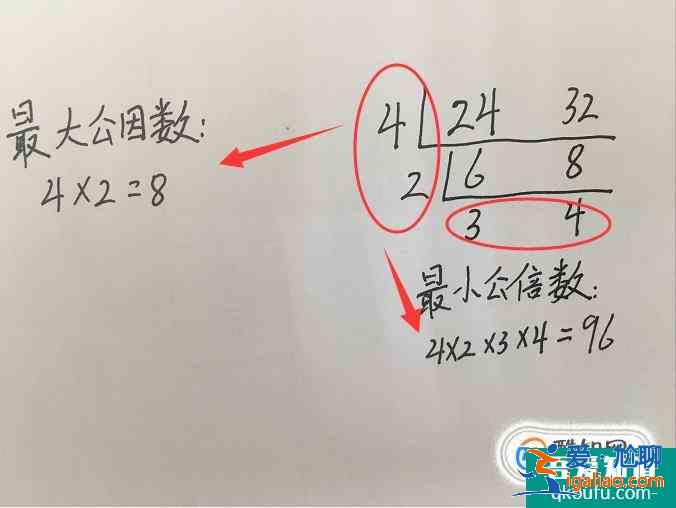 最大公因数:
4×2=8
4 24 32
2 6 8
3 4
最小公倍数:
4×2×3×4=96
爱尬聊
igaliao.com
qkoufu.com